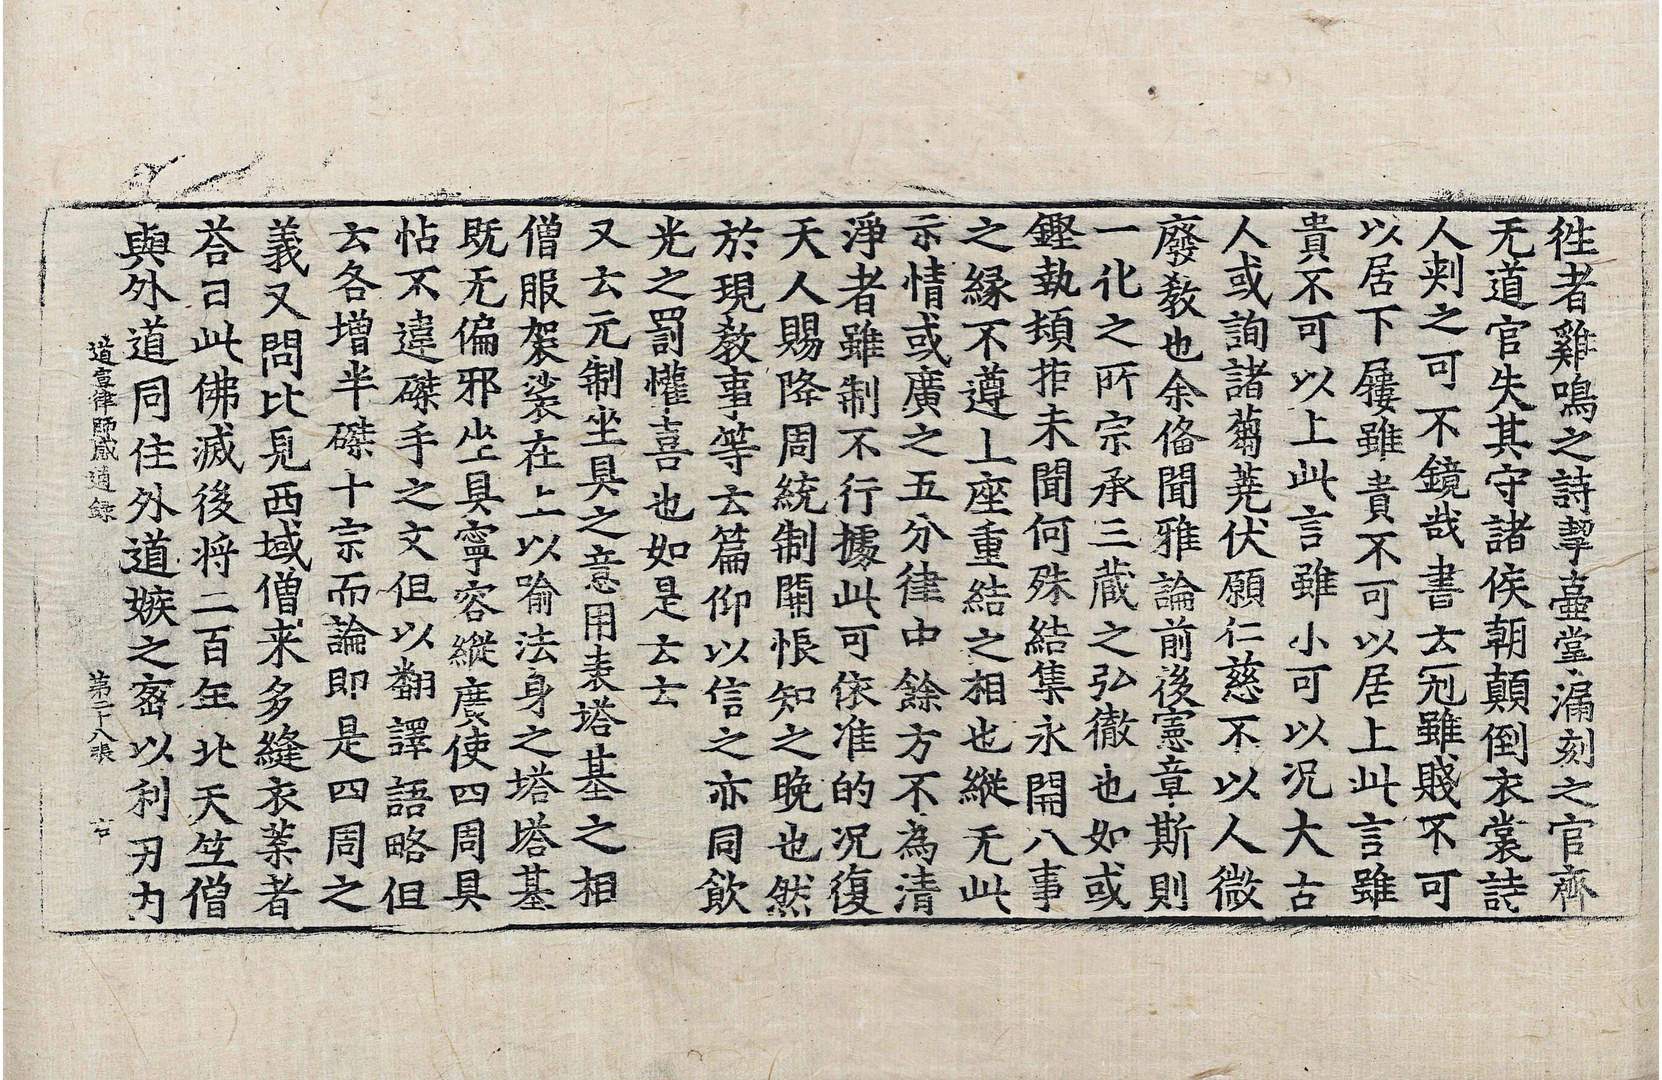 徃者雞鳴之詩挈壺堂漏刻之官齊
无道官失其守諸侯朝顛倒衣裳詩
人刺之可不鏡哉書云冠雖賤不可
以居下屨雖貴不可以居上此言雖
貴不可以上此言雖小可以况大古
人或詢諸蒭蕘伏願仁慈不以人微
廢教也余俻聞雅論前後憲章斯則
一化之所宗承三蔵之弘徹也如或
鏗執頻拒未聞何殊結集永開八事
之縁不遵上座重結之相也縱无此
示情或廣之五分律中餘方不為清
淨者雖制不行據此可依准的况復
天人賜降周統制開悵知之晚也然
於現教事等云篇仰以信之亦同飲
光之罰懽喜也如是云云
又云元制坐具之意用表塔基之相
僧服袈裟在上以喻法身之塔塔基
既无偏邪坐具寧容縱廣使四周具
帖不違磔手之文但以翻譯語略但
云各增半磔十宗而論即是四周之
義又問比見西域僧来多縫衣葉者
荅曰此佛滅後将二百年北天竺僧
與外道同住外道嫉之宻以利刃内
道宣律師感通録 第二十八張 右